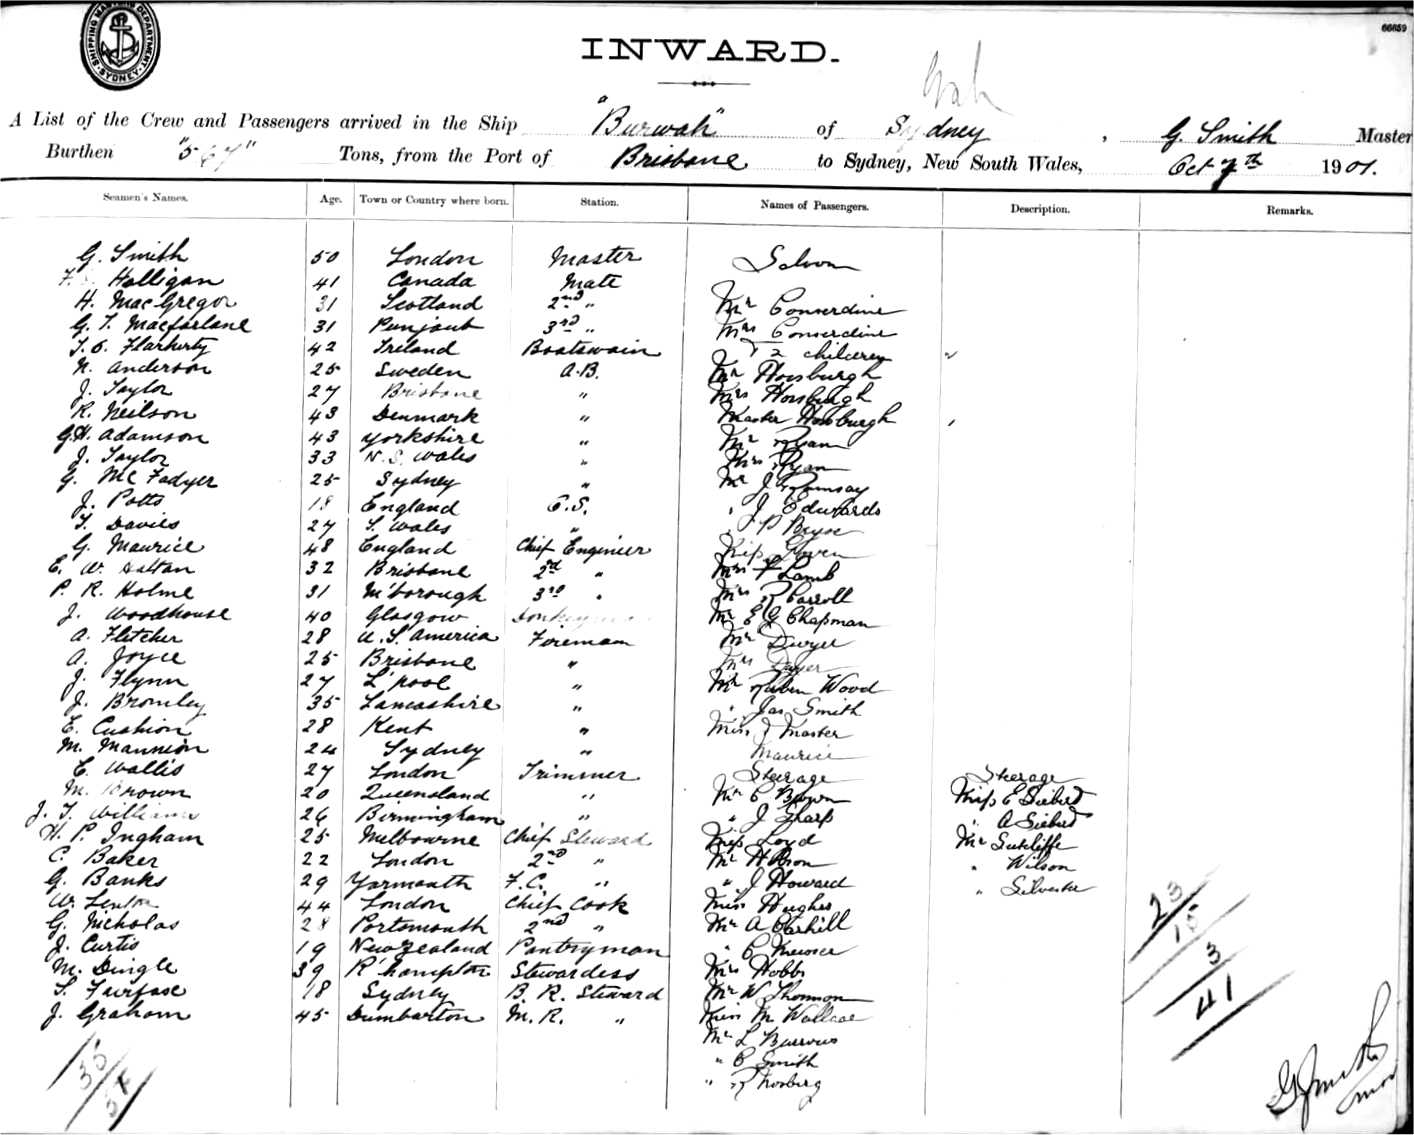 SHIPPING MASTERS DEPARTMENT SYDNEY
66659
INWARD.
A List of the Crew and Passengers arrived in the Ship "Burwah" of Sydney, G. Smith Master
Burthen "567" Tons, from the Port of Brisbane to Sydney, New South Wales, Oct 7th 1901.
Seamen's Names. Age. Town or Country where born. Station. Names of Passengers. Description. Remarks.
G. Smith 50 London Master Saloon
Halligan 41 Canada Mate
H. MacGregor 31 Scotland 2nd " Mr Conserdine
G. T. Macfarlane 31 Punjaub 3rd " Mrs Conserdine
T. O. Flarherty 42 Ireland Boatswain 2 children
N. Anderson 25 Sweden A.B. Mr Horsburgh
J. Taylor 27 Brisbane " Mrs Horsburgh
R. Neilson 43 Denmark " Master Horsburgh
G.H. Adamson 43 Yorkshire " Mr Ryan
J. Taylor 33 N.S. Wales " Mrs Ryan
G. McFadyer 25 Sydney " Mr J Ramsay
J. Potts 18 England O.S. " J Edwards
T. Davies 27 S. Wales "
G. Maurice 48 England Chief Engineer Miss
E. W. Dalton 32 Brisbane 2nd " Mrs Lamb
P. R. Holme 31 M'borough 3rd " Mrs R Carroll
J. Woodhouse 40 Glasgow Mr E G Chapman
A. Fletcher 28 U.S. America Foreman Mr Dwyer
A. Joyce 25 Brisbane " Mrs Dwyer
J. Flynn 27 L'pool " Mr Ruben Wood
J. Bromley 35 Lancashire " " Jas Smith
E. Cushion 28 Kent " Miss J Master
M. Mannion 24 Sydney " Maurice
E. Wallis 27 London Trimmer Steerage Steerage
M. Brown 20 Queensland " Mr C Brown Miss E Siebert
J. T. Williams 26 Birmingham " " J Sharp " A Siebert
H. P. Ingham 25 Melbourne Chief Steward Miss Loyd Mr Sutcliffe
C. Baker 22 London 2nd " Mr " Wilson
G. Banks 29 Yarmouth F.C. " " J Howard " Silvester
W. Lenton 44 London Chief Cook Miss Hughes
G. Nicholas 28 Portsmouth 2nd " Mr A
J. Curtis 19 New Zealand Pantryman " C
M. Dingle 39 R'hampton Stewardess Mrs Hobbs
S. Fairfase 18 Sydney B. R. Steward Mr W Thomson
J. Graham 45 Dumbarton M. R. " Miss M Wallace
Mr L Burrows
" C Smith
"
23
15
3
41
35
G Smith